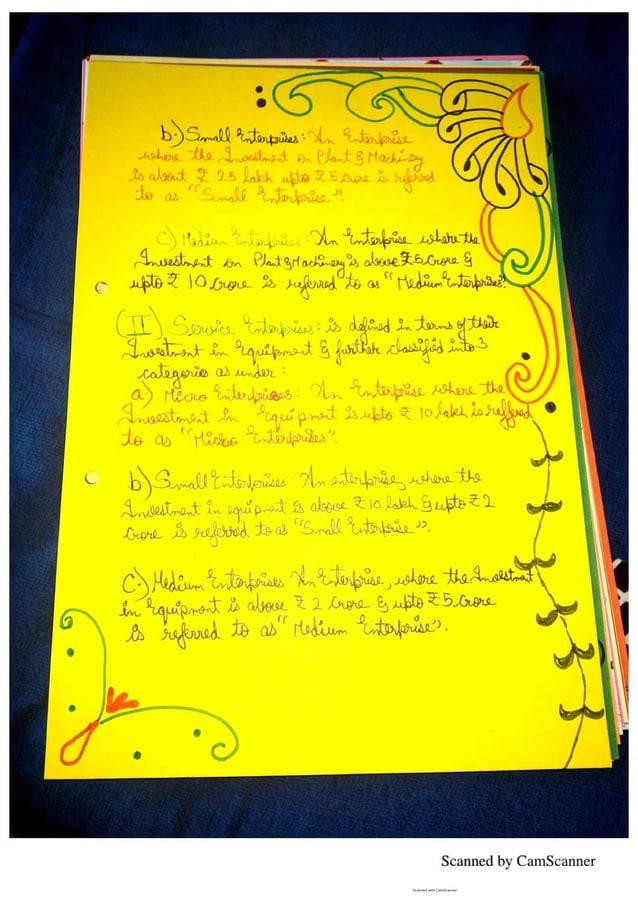 b.) Small Enterprises: An Enterprise
where the Investment on Plant & Machinery
is about ₹ 25 lakh upto ₹ 5 Crore is referred
to as "Small Enterprise".
c) Medium Enterprises: An Enterprise where the
Investment on Plant & Machinery is above ₹ 5 Crore &
upto ₹ 10 Crore is referred to as "Medium Enterprises".
(II) Service Enterprises: is defined in terms of their
Investment in Equipment & further classified into 3
categories as under:
a) Micro Enterprises: An Enterprise where the
Investment in Equipment is upto ₹ 10 lakh is reffered
to as "Micro Enterprises".
b) Small Enterprises An enterprise, where the
Investment in equipment is above ₹ 10 lakh & upto ₹ 2
Crore is referred to as "Small Enterprise".
C.) Medium Enterprises An Enterprise, where the Investment
in Equipment is above ₹ 2 Crore & upto ₹ 5 Crore
is referred to as "Medium Enterprise".
Scanned by CamScanner
Scanned with CamScanner